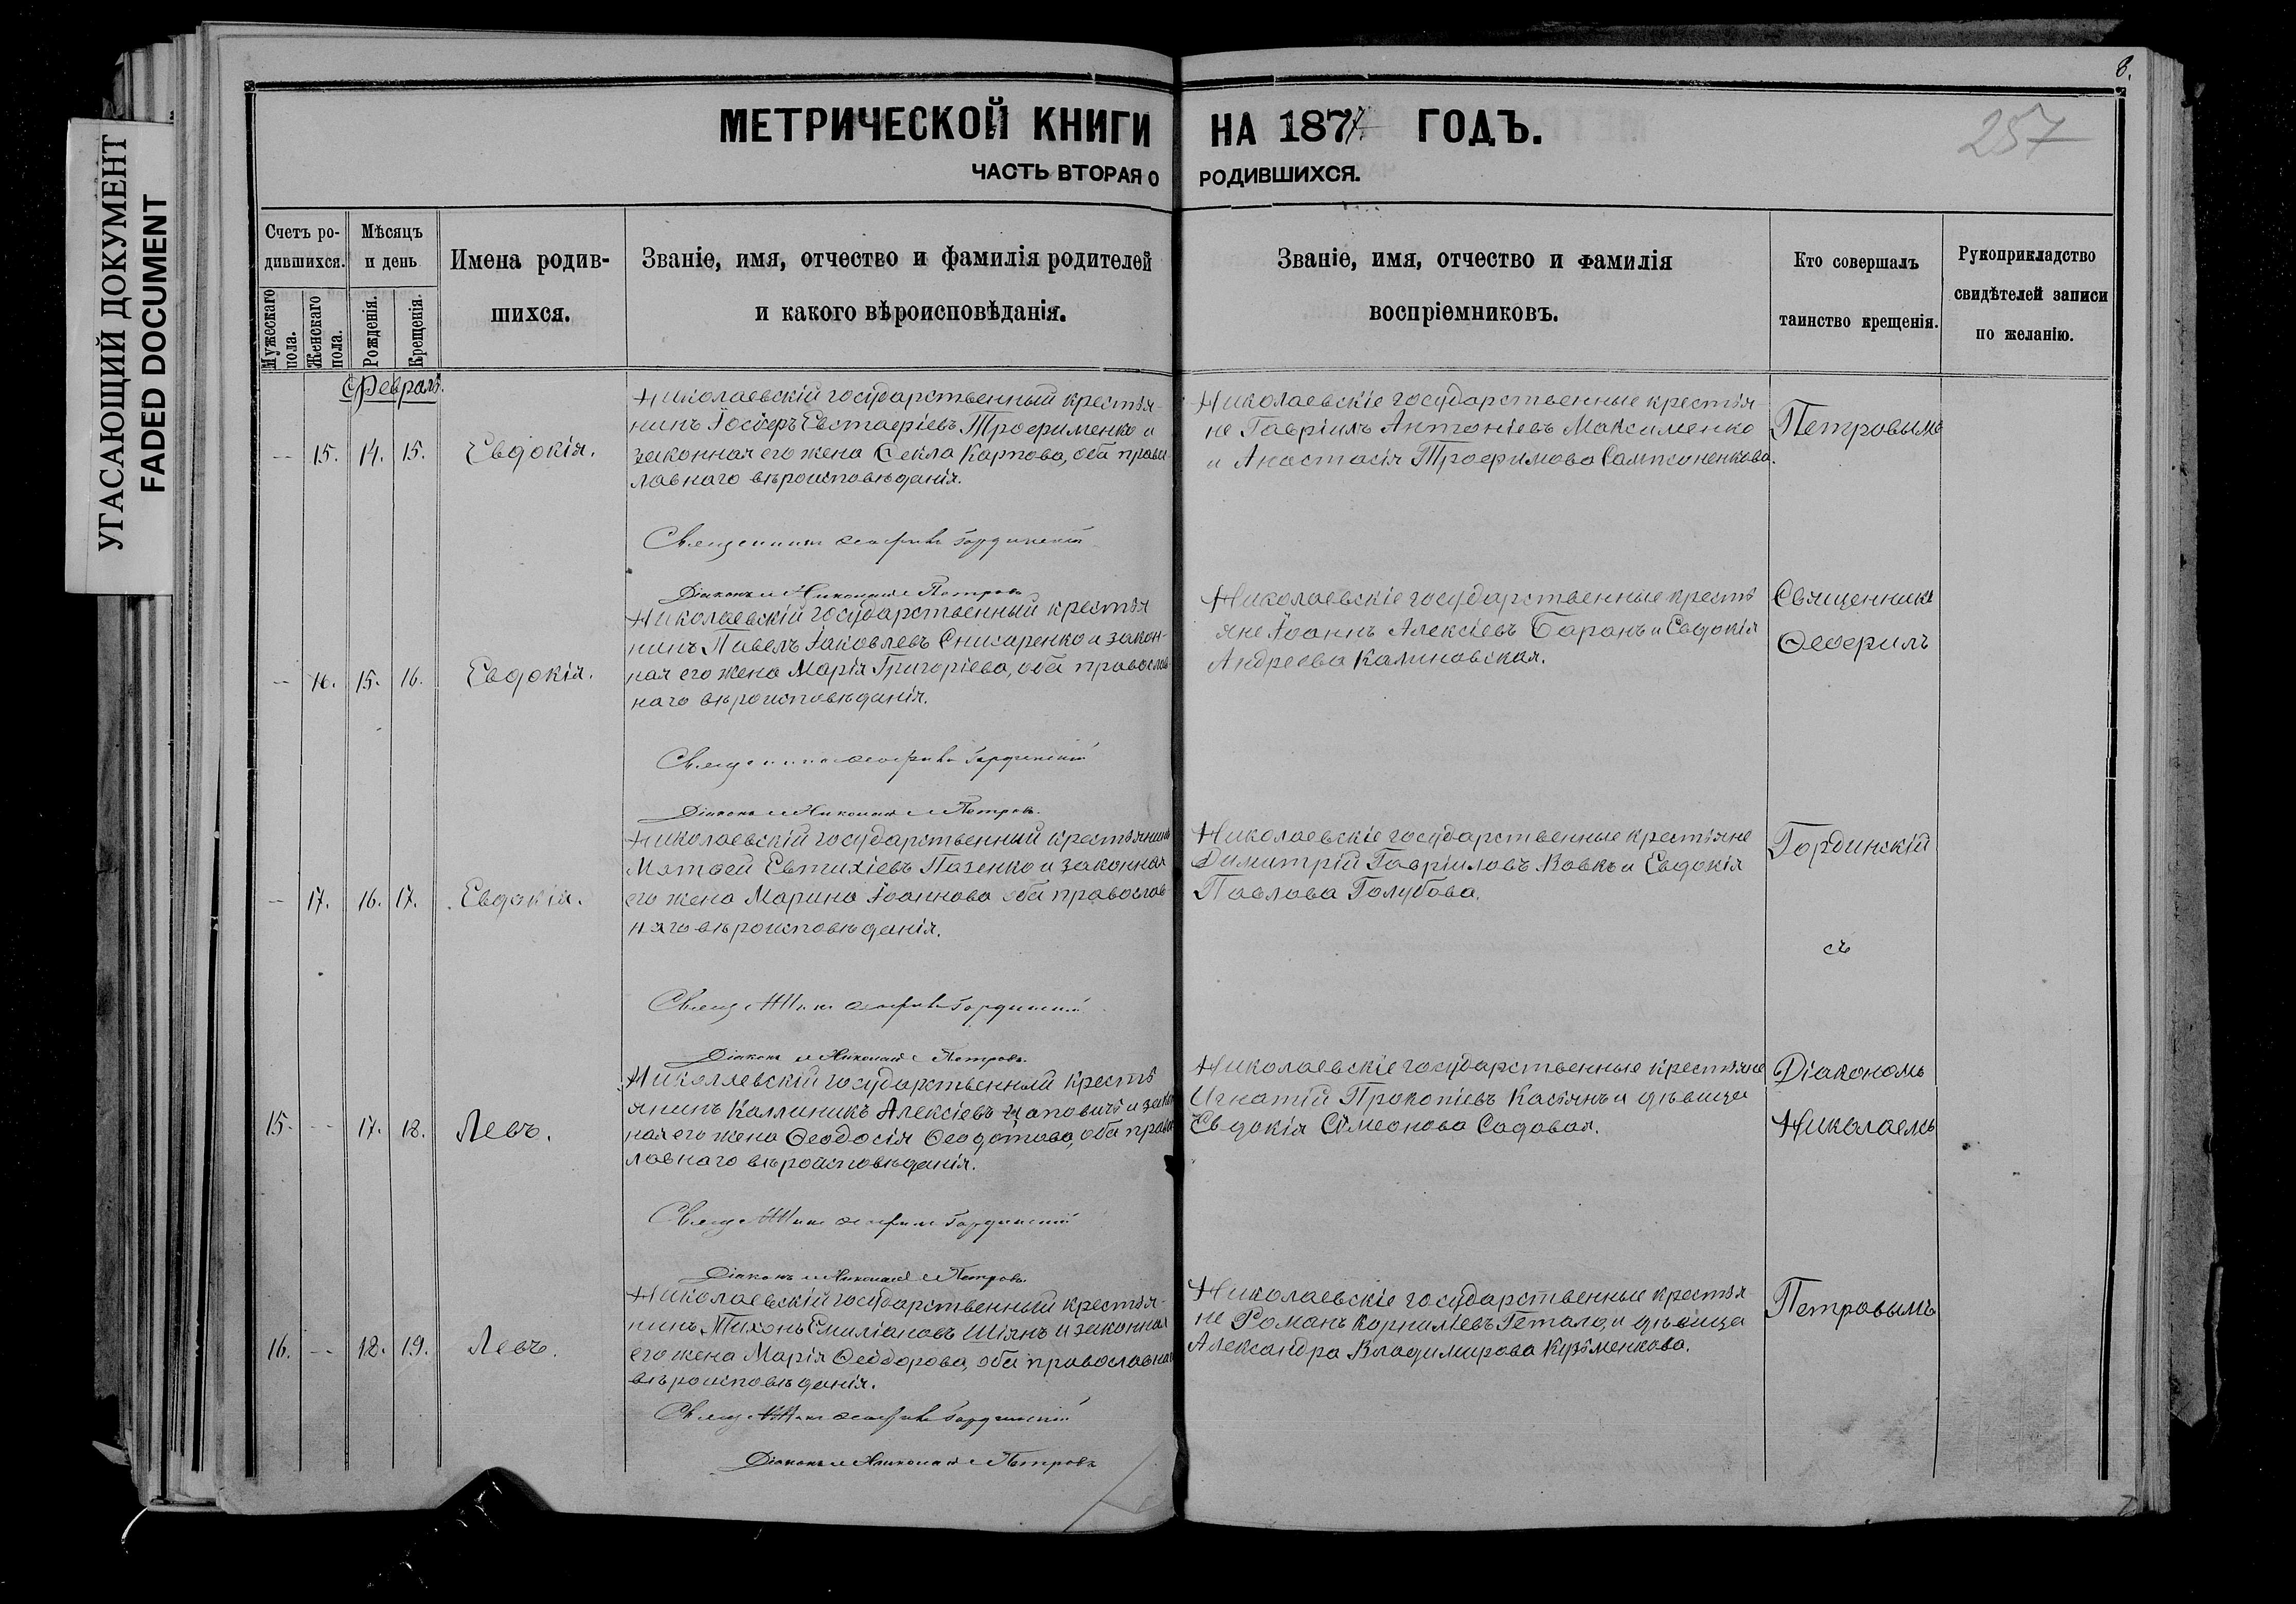 УГАСАЮЩИЙ ДОКУМЕНТ
FADED DOCUMENT
8.
257
МЕТРИЧЕСКОЙ КНИГИ НА 1877 ГОДЪ.
ЧАСТЬ ВТОРАЯ О РОДИВШИХСЯ.
Счетъ ро-
дившихся.
Мужескаго пола.
Женскаго пола.
Мѣсяцъ
и день
Рожденія.
Крещенія.
Имена родив-
шихся.
Званіе, имя, отчество и фамилія родителей
и какого вѣроисповѣданія.
Званіе, имя, отчество и фамилія
воспріемниковъ.
Кто совершалъ
таинство крещенія.
Рукоприкладство
свидѣтелей записи
по желанію.
Февраль.
— 15. 14. 15. Евдокія.
Николаевскій государственный крестья-
нинъ Іосифъ Евстафіевъ Трофименко и
законная его жена Ѳекла Карпова, оба право
лавнаго вѣроисповѣданія.
Священникъ Ѳеофилъ Гординскій
Діаконъ Николай Петровъ
Николаевскіе государственные крестья-
не Гавріилъ Антоніевъ Максименко
и Анастасія Трофимова Сампсоненкова.
Петровымъ
— 16. 15. 16. Евдокія.
Николаевскій государственный крестья
нинъ Павелъ Іаковлевъ Снисаренко и закон-
ная его жена Марія Григоріева, оба православ
наго вѣроисповѣданія.
Священникъ Ѳеофилъ Гординскій
Діаконъ Николай Петровъ.
Николаевскіе государственные кресть
яне Іоаннъ Алексіевъ Баранъ и Евдокія
Андреева Калиновская.
Священникъ
Ѳеофилъ
— 17. 16. 17. Евдокія.
Николаевскій государственный крестьянинъ
Матѳей Евтихіевъ Пазенко и законная
его жена Марина Іоаннова оба православ
наго вѣроисповѣданія.
Священникъ Ѳеофилъ Гординскій
Діаконъ Николай Петровъ.
Николаевскіе государственные крестьяне
Димитрій Гавріиловъ Вовкъ и Евдокія
Павлова Голубова.
Гординскій
съ
15. — 17. 18. Левъ.
Николаевскій государственный кресть
янинъ Каллиникъ Алексіевъ и закон
ная его жена Ѳеодосія Ѳеодотова, оба право
лавнаго вѣроисповѣданія.
Священникъ Ѳеофилъ Гординскій
Діаконъ Николай Петровъ.
Николаевскіе государственные крестьяне
Игнатій Прокопіевъ Касьянъ и дѣвица
Евдокія Сімеонова Садовая.
Діакономъ
Николаемъ
16. — 18. 19. Левъ.
Николаевскій государственный крестья-
нинъ Тихонъ Емиліановъ Шіянъ и законная
его жена Марія Ѳеодорова, оба православнаго
вѣроисповѣданія.
Священникъ Ѳеофилъ Гординскій
Діаконъ Николай Петровъ
Николаевскіе государственные крестья-
не Романъ Корниліевъ Гетало, и дѣвица
Александра Владимирова Кузьменкова.
Петровымъ